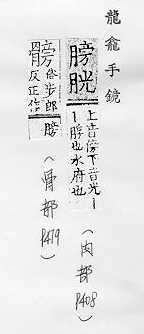 龍龕手鏡
膀胱
上音傍下音光丨
丨脬也水府也
(肉部 P408)
俗步郎
反正作膀
(骨部 P479)